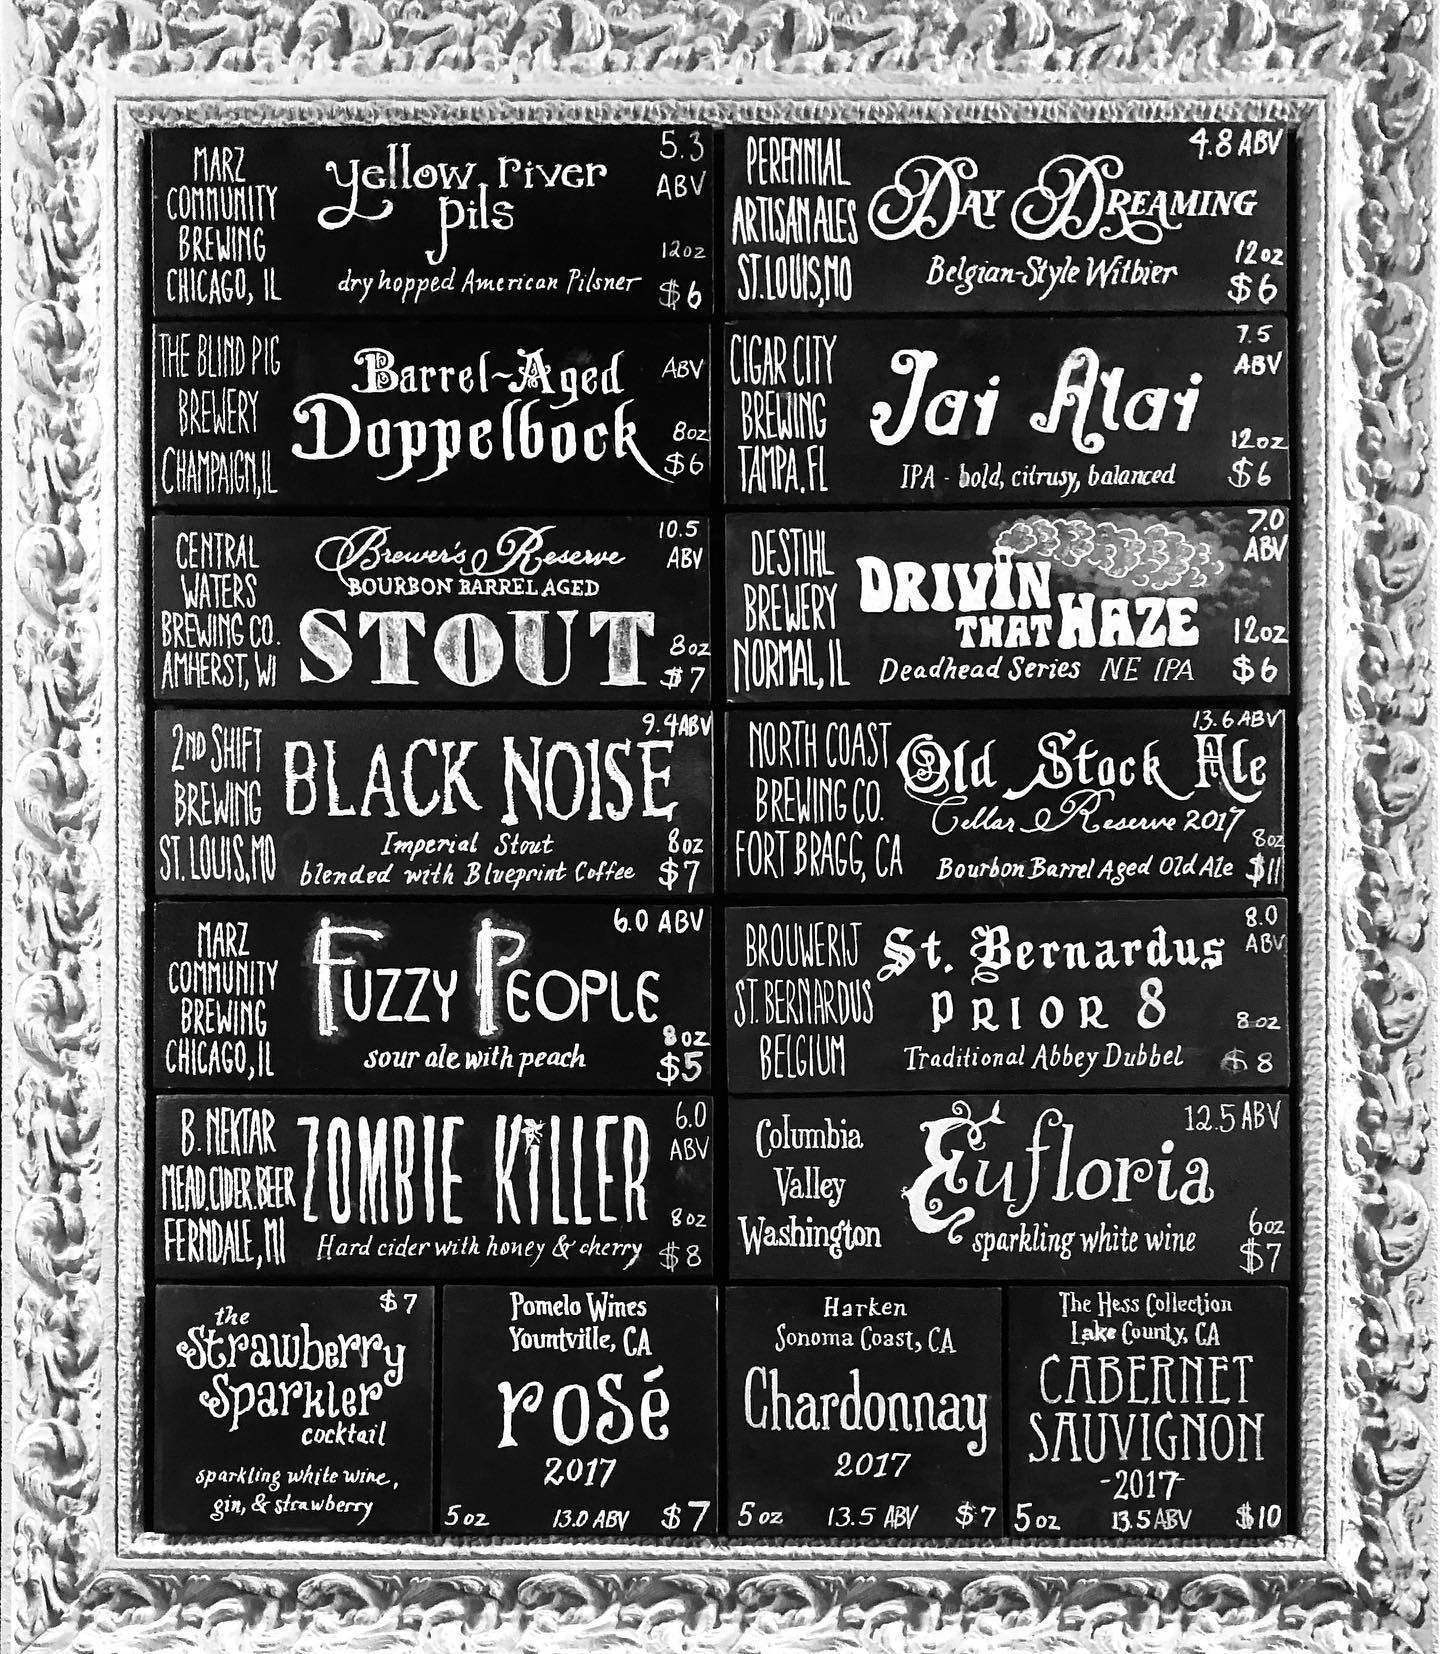 MARZ
COMMUNITY
BREWING
CHICAGO, IL
yellow river
pils
dry hopped American Pilsner
5.3
ABV
12oz
$6
PERENNIAL
ARTISAN ALES
ST. LOUIS, MO
DAY DREAMING
Belgian-Style Witbier
4.8 ABV
12oz
$6
THE BLIND PIG
BREWERY
CHAMPAIGN, IL
Barrel-Aged
Doppelbock
ABV
8oz
$6
CIGAR CITY
BREWING
TAMPA, FL
Jai Alai
IPA - bold, citrusy, balanced
7.5
ABV
12oz
$6
CENTRAL
WATERS
BREWING CO.
AMHERST, WI
Brewer's Reserve
BOURBON BARREL AGED
STOUT
10.5
ABV
8oz
$7
DESTIHL
BREWERY
NORMAL, IL
DRIVIN
THAT HAZE
Deadhead Series NE IPA
7.0
ABV
12oz
$6
2ND SHIFT
BREWING
ST. LOUIS, MO
BLACK NOISE
Imperial Stout
blended with Blueprint Coffee
9.4 ABV
8oz
$7
NORTH COAST
BREWING CO.
FORT BRAGG, CA
Old Stock Ale
Cellar Reserve 2017
Bourbon Barrel Aged Old Ale
13.6 ABV
8oz
$11
MARZ
COMMUNITY
BREWING
CHICAGO, IL
FUZZY PEOPLE
sour ale with peach
6.0 ABV
8oz
$5
BROUWERIJ
ST. BERNARDUS
BELGIUM
St. Bernardus
PRIOR 8
Traditional Abbey Dubbel
8.0
ABV
8oz
$8
B. NEKTAR
MEAD.CIDER.BEER
FERNDALE, MI
ZOMBIE KiLLER
Hard cider with honey & cherry
6.0
ABV
8oz
$8
Columbia
Valley
Washington
Eufloria
sparkling white wine
12.5 ABV
6oz
$7
$7
the
Strawberry
Sparkler
cocktail
sparkling white wine,
gin, & strawberry
Pomelo Wines
Yountville, CA
rosé
2017
5oz 13.0 ABV $7
Harken
Sonoma Coast, CA
Chardonnay
2017
5oz 13.5 ABV $7
The Hess Collection
Lake County, CA
CABERNET
SAUVIGNON
-2017-
5oz 13.5 ABV $10